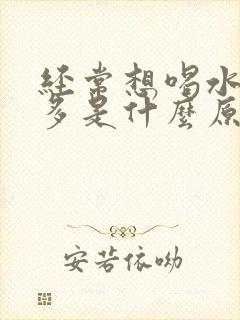 經常想喝水
多是什麼原
安若依呦